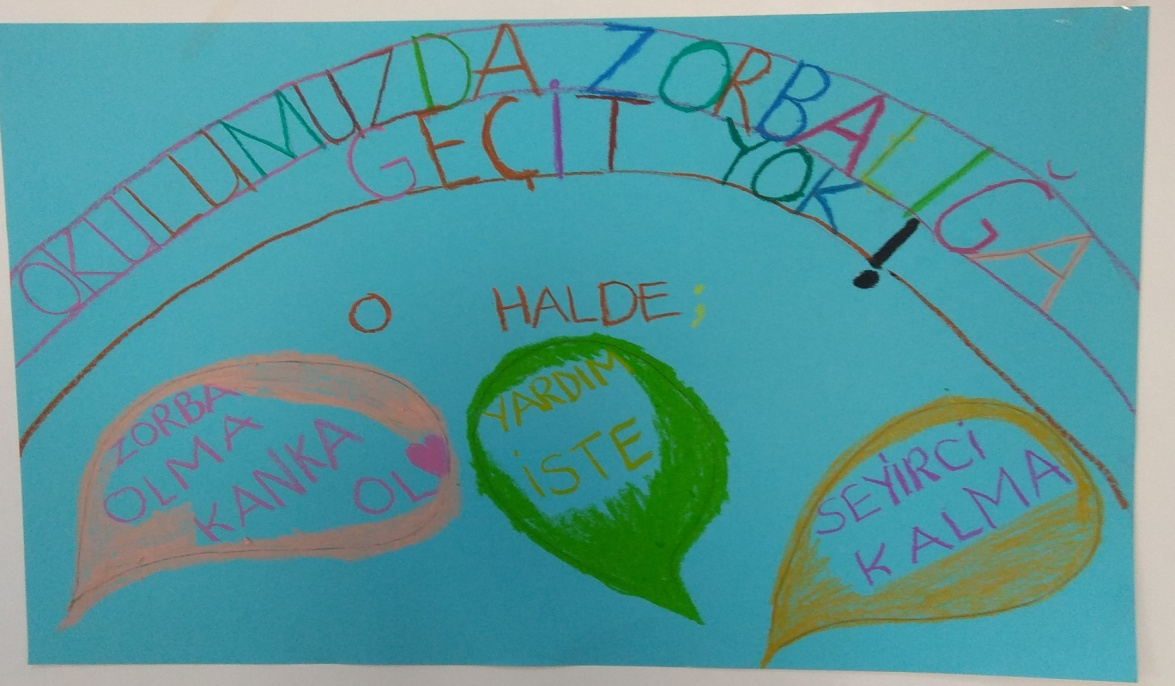 OKULUMUZDA ZORBALIĞA
GEÇİT YOK!
O HALDE;
ZORBA
OLMA
KANKA
OL
YARDIM
İSTE
SEYİRCİ
KALMA